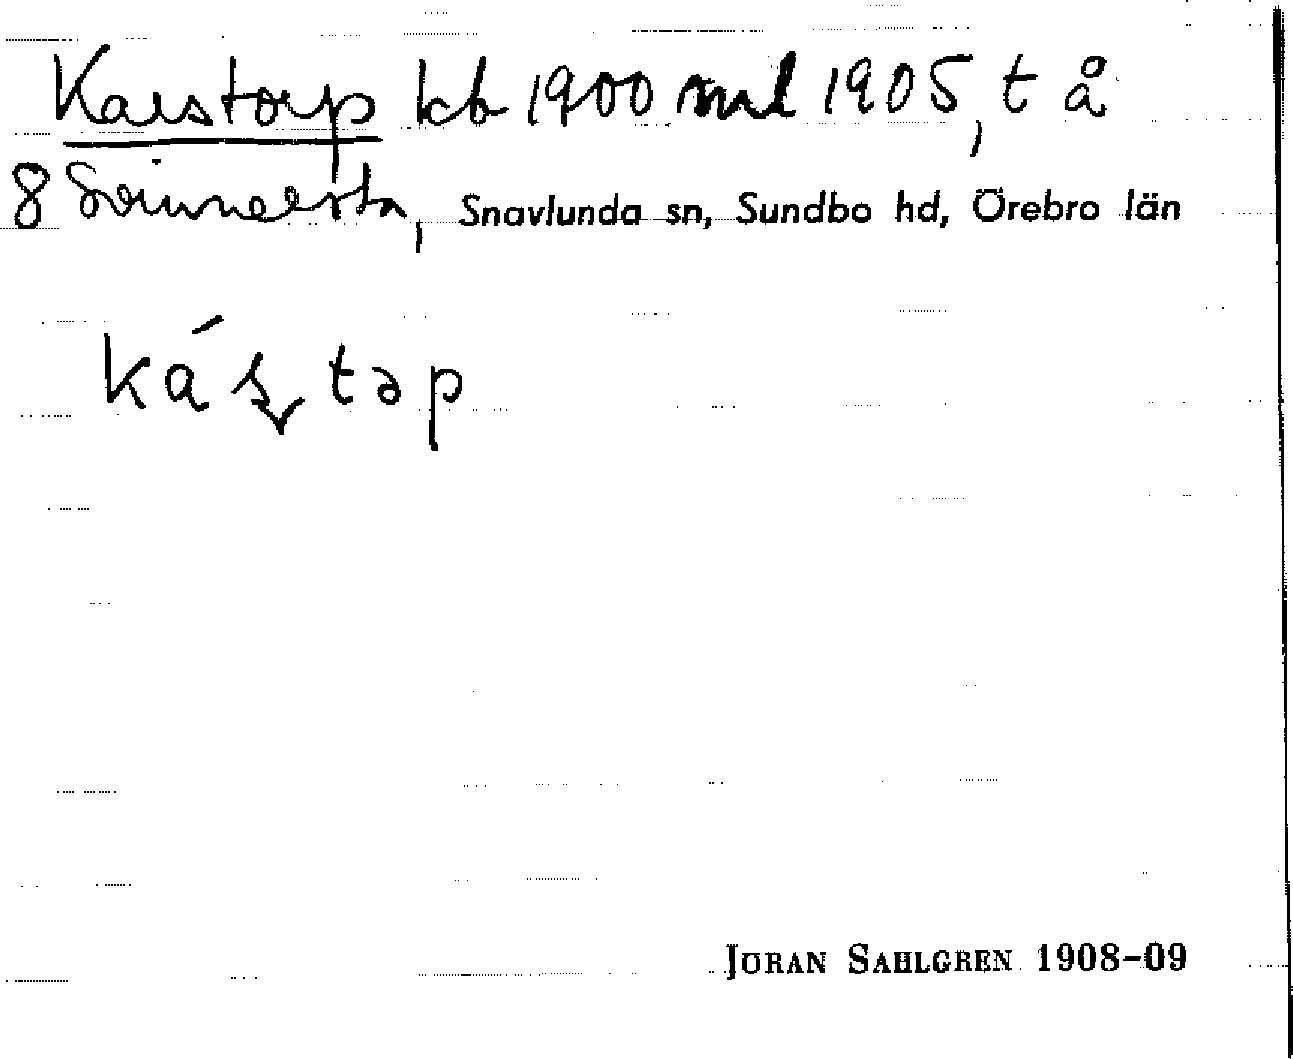 Karstorp kb 1900 ml 1905, t å
8 Svinnersta, Snavlunda sn, Sundbo hd, Örebro län
ká ş təp
JÖRAN SAHLGREN 1908-09